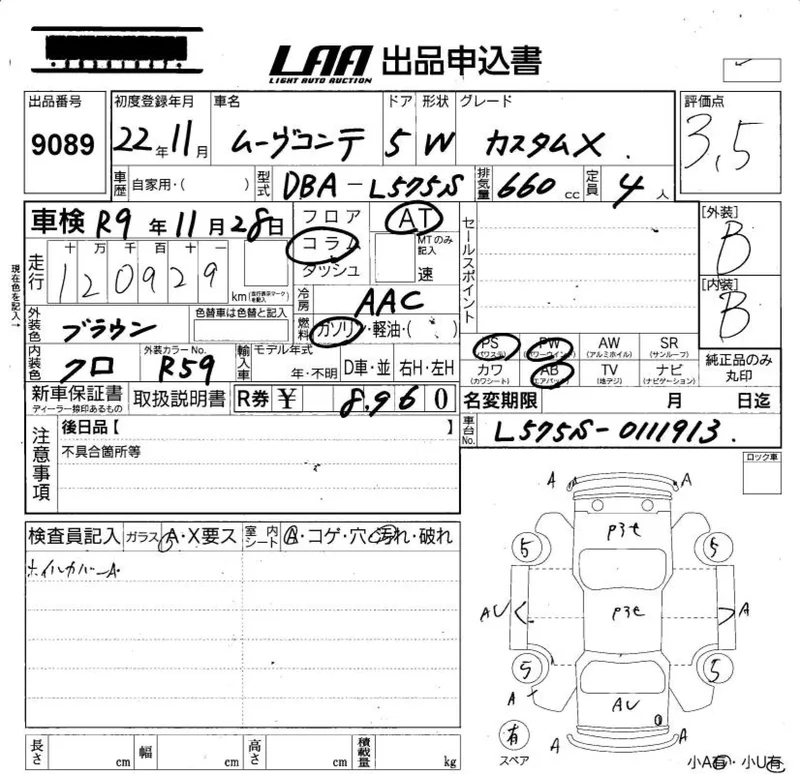 LAA 出品申込書
LIGHT AUTO AUCTION
出品番号 初度登録年月 車名 ドア 形状 グレード 評価点
9089 22年11月 ムーヴコンテ 5 W カスタムX 3,5
車歴 自家用・( ) 型式 DBA-L575S 排気量 660cc 定員 4人
車検 R9年11月28日 フロア AT セールスポイント [外装]
コラム MTのみ記入 B
走行 十万千百十一 ダッシュ 速 [内装]
120929 km (走行表示マークを記入) B
現在色を記入→
冷房 AAC
外装色 ブラウン 色替車は色替と記入 燃料 ガソリン・軽油・( )
PS(パワステ) PW(パワーウインド) AW(アルミホイル) SR(サンルーフ)
内装色 クロ 外装カラーNo. R59 輸入車 モデル年式 年・不明 D車・並 右H・左H
カワ(カワシート) AB(エアバッグ) TV(地デジ) ナビ(ナビゲーション) 純正品のみ丸印
新車保証書 ディーラー捺印あるもの 取扱説明書 R券 ¥ 8,960 名変期限 月 日迄
注意事項 後日品【 】 車台No. L575S-0111913.
不具合箇所等
ロック車
検査員記入 ガラス A・X要ス 室内シート A・コゲ・穴・汚れ・破れ
ホイルカバーA・
A A
P3セ
5 5
AU P3セ A
5 5
A AU
有 A A
スペア 小A有・小U有
長さ cm 幅 cm 高さ cm 積載量 kg